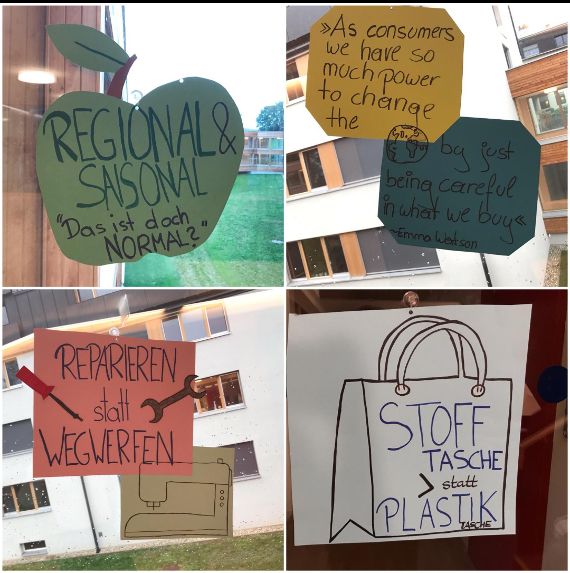 REGIONAL &
SAISONAL
"Das ist doch
NORMAL?"
»As consumers
we have so
much power
to change
the
by just
being careful
in what we buy«
~Emma Watson
REPARIEREN
statt
WEGWERFEN
STOFF
TASCHE
> statt
PLASTIK
TASCHE